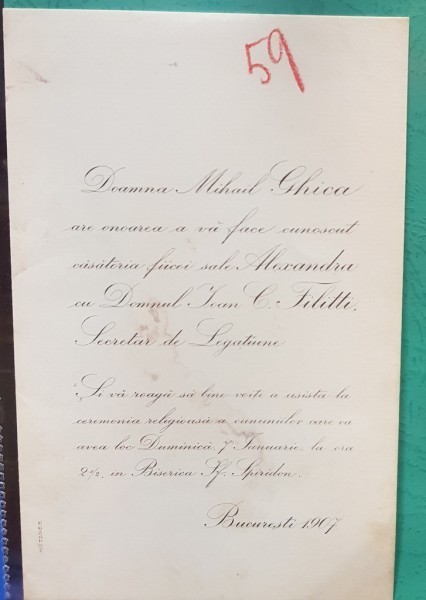 59
Doamna Mihail Ghica
are onoarea a vă face cunoscut
căsătoria fiicei sale Alexandra
cu Domnul Ioan C. Filitti,
Secretar de Legatiune
Si vă roagă să bine voiti a asista la
ceremonia religioasă a cununiilor care va
avea loc Duminică, 7 Ianuarie, la ora
2 1/2, in Biserica Sf. Spiridon.
Bucuresti 1907